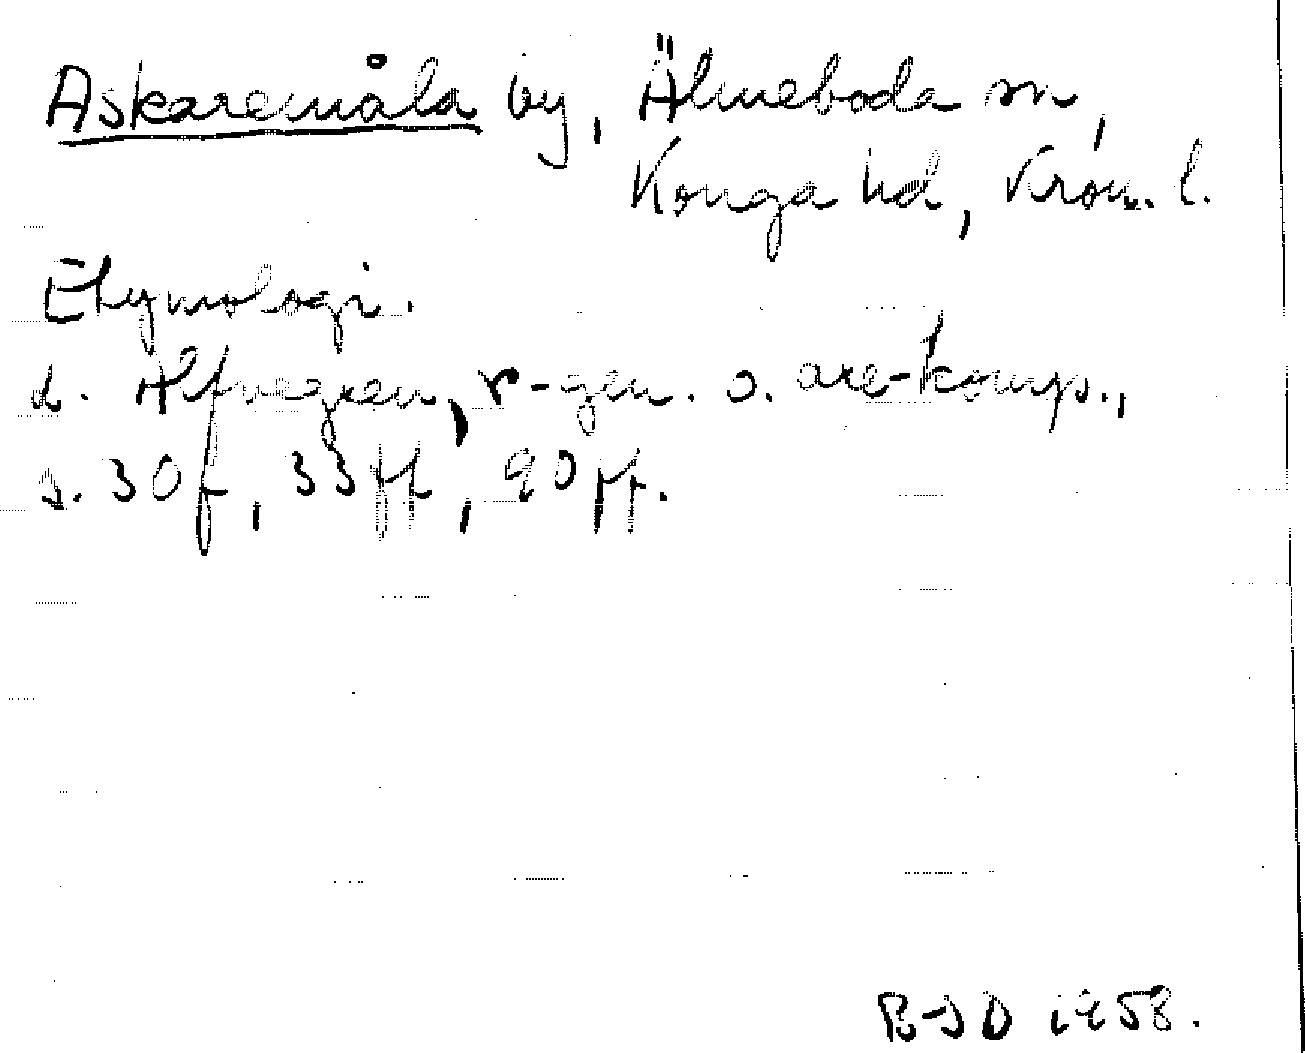 Askaremåla by, Älmeboda sn,
Konga hd, Kron. l.
Etymologi.
L. Alfvegren, r-gen. o. are-komp.,
s. 30f, 33ff, 90ff.
B-SD 1958.